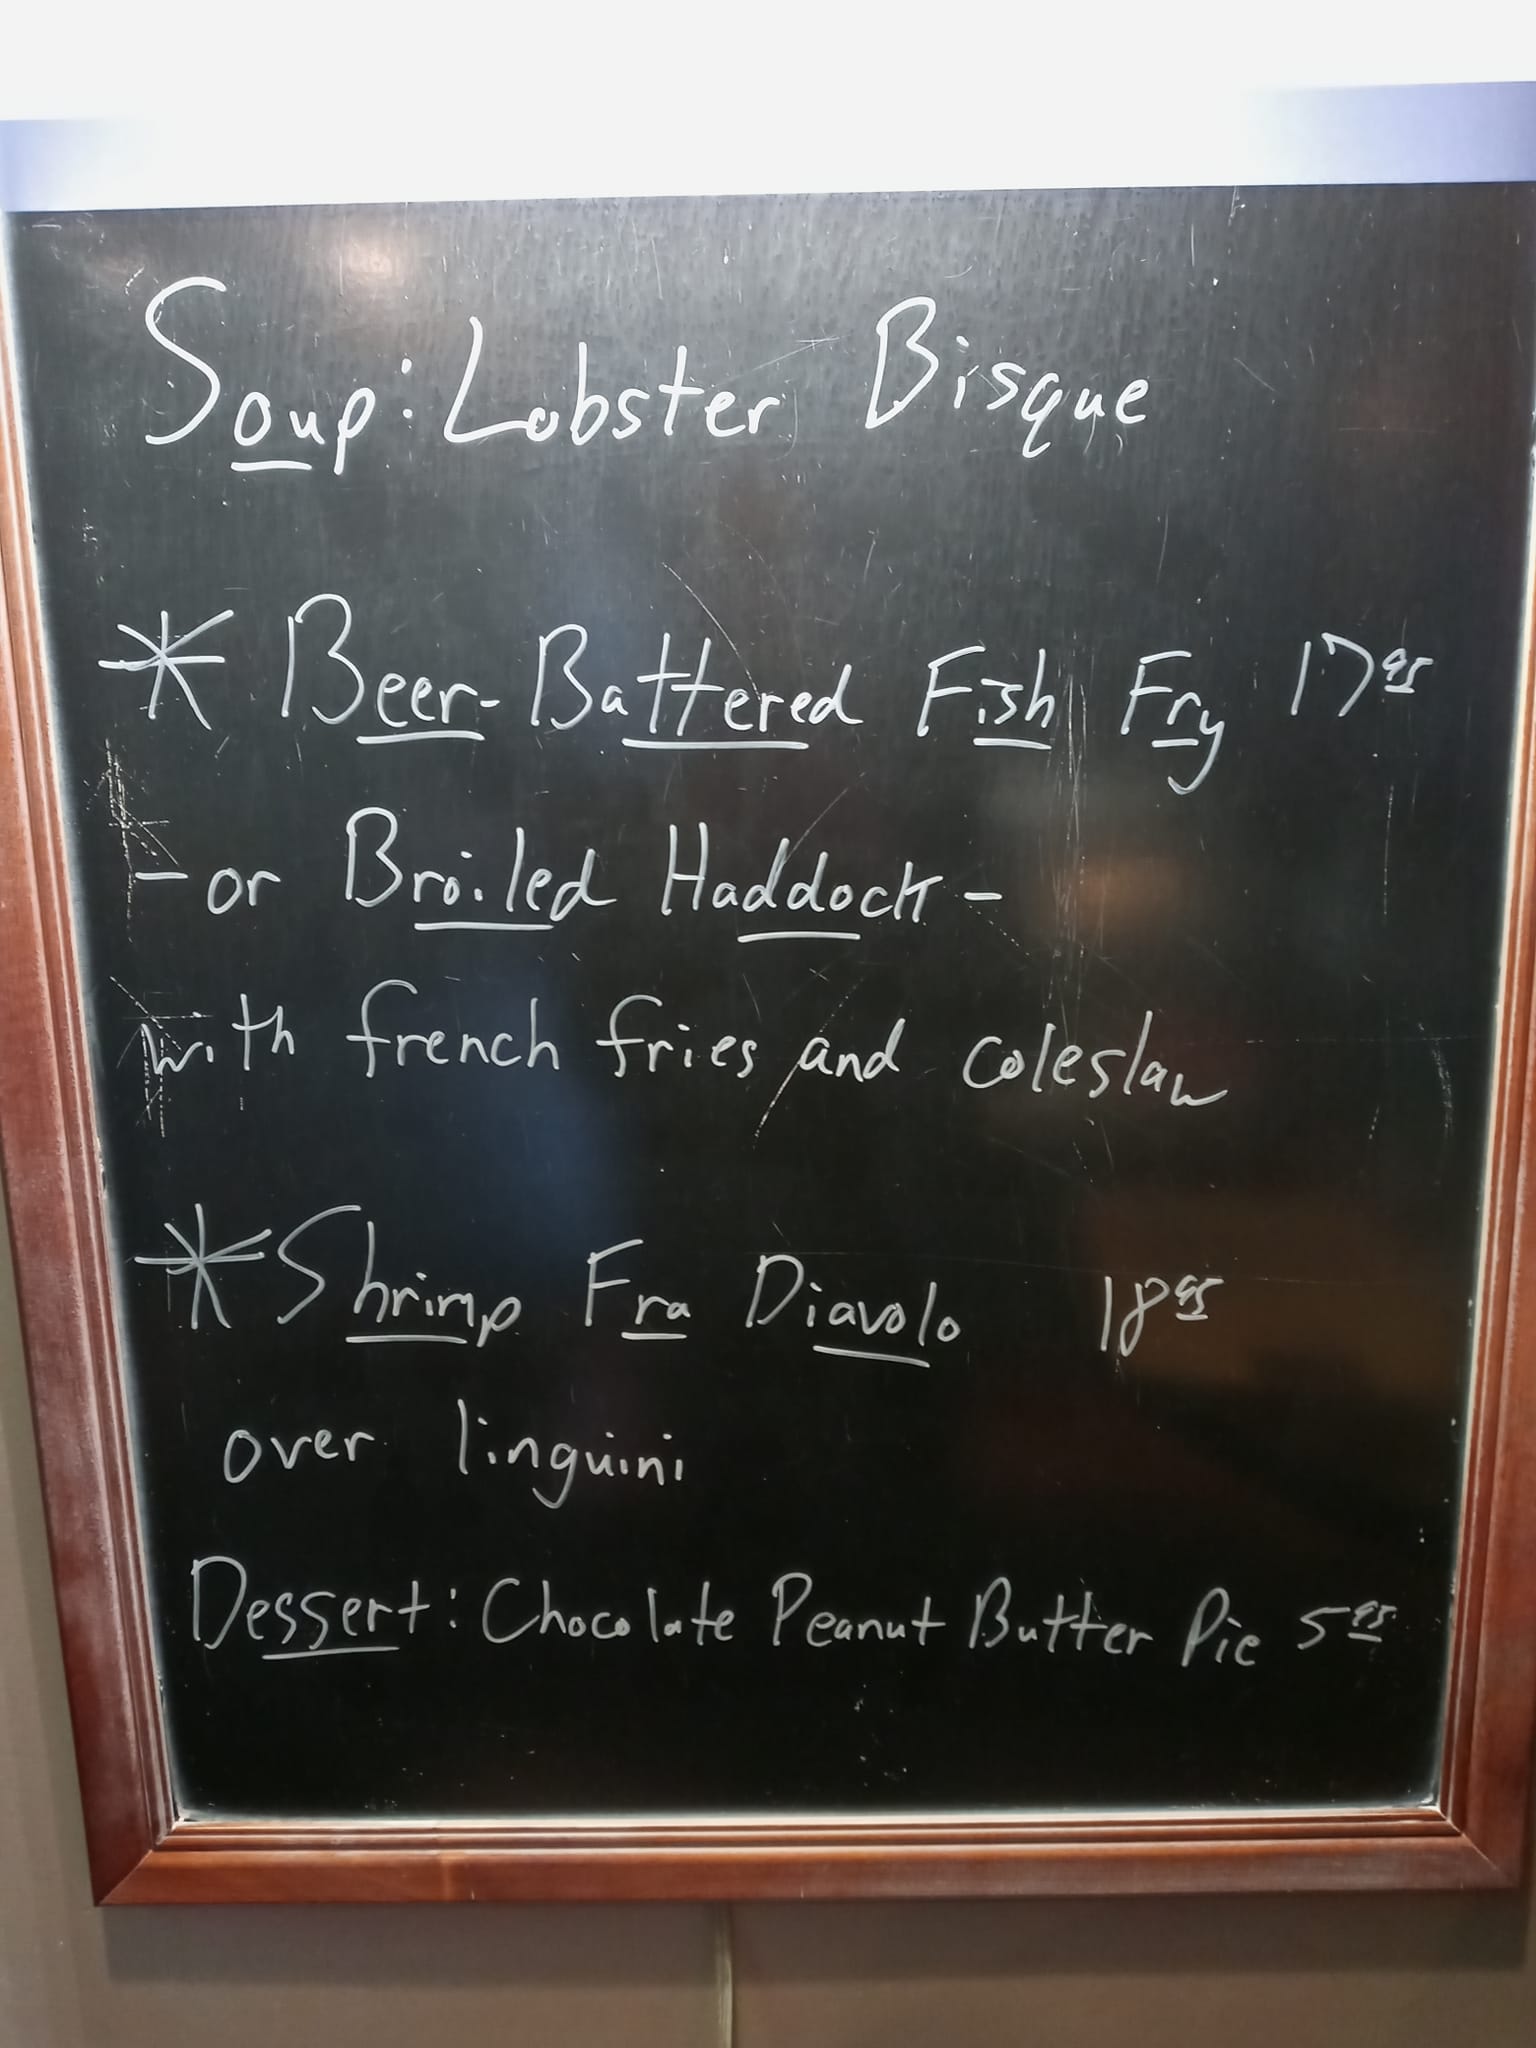 Soup: Lobster Bisque
* Beer-Battered Fish Fry 17 95
- or Broiled Haddock -
with french fries and coleslaw
* Shrimp Fra Diavolo 18 95
over linguini
Dessert: Chocolate Peanut Butter Pie 5 95